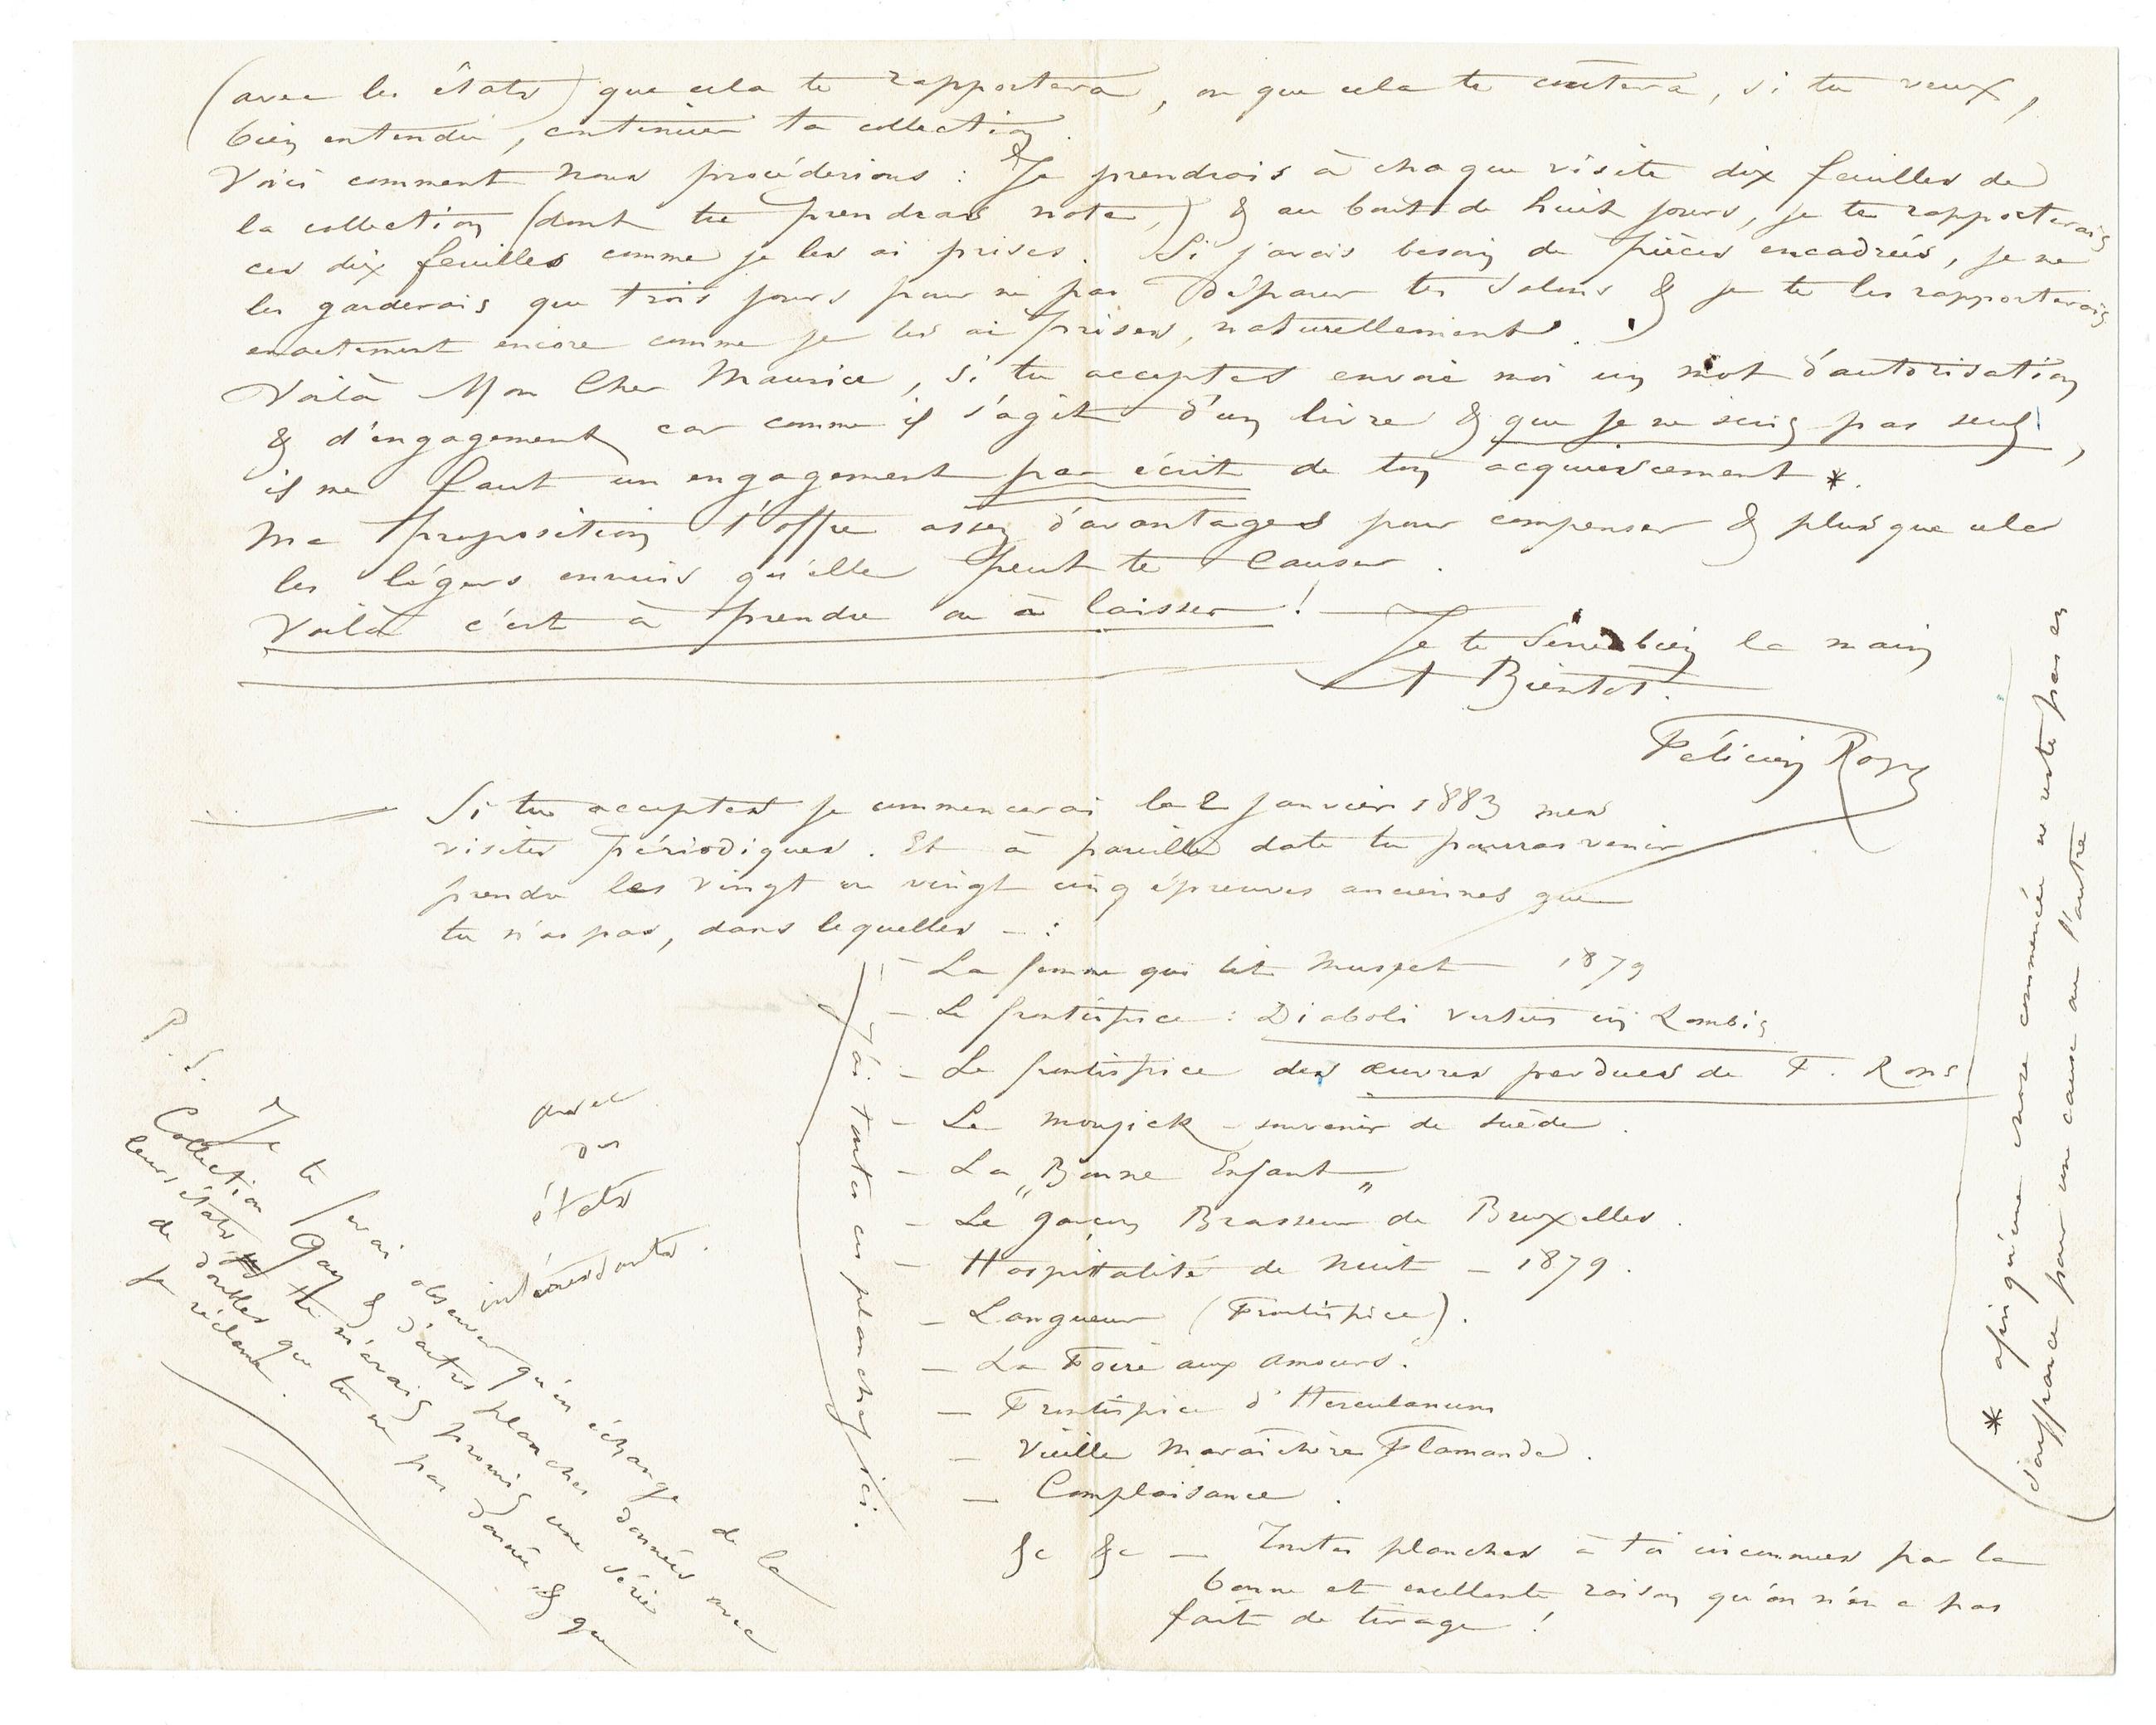 (avec les états) que cela te rapportera, ou que cela te coûtera, si tu veux,
bien entendu, continuer ta collection.
Voici comment nous procéderions : Je prendrais à chaque visite dix feuilles de
la collection (dont tu prendras note,) & au bout de huit jours, je te rapporterais
ces dix feuilles comme je les ai prises. Si j'avais besoin de pièces encadrées, je ne
les garderais que trois jours pour ne pas déparer tes salons & je te les rapporterais
exactement encore comme je les ai prises, naturellement.
Voilà Mon Cher Maurice, si tu acceptes envoie moi un mot d'autorisation
& d'engagement car comme il s'agit d'un livre & que je ne suis pas seul,
il me faut un engagement par écrit de ton acquiescement *.
Ma proposition t'offre assez d'avantages pour compenser & plus que cela
les légers ennuis qu'elle peut te causer.
Voilà c'est à prendre ou à laisser !
Je te serre bien la main
A Bientôt.
Félicien Rops
Si tu acceptes je commencerai le 2 janvier 1883 mes
visites périodiques. Et à pareille date tu pourras venir
prendre les vingt ou vingt cinq épreuves anciennes que
tu n'as pas, dans lequelles – :
– La femme qui lit Musset 1879
– Le frontispice : Diaboli virtus in Lombis
– Le frontispice des œuvres perdues de F. Rops
– Le moujick – souvenir de suède.
– La „Bonne Enfant„
– Le garçon Brasseur de Bruxelles.
– Hospitalité de Nuit – 1879.
– Langueur (Frontispice).
– La Foire aux Amours.
– Frontispice d'Herculanum
– Vieille Maraichère Flamande.
– Complaisance.
&c &c – Toutes planches à toi inconnues par la
bonne et excellente raison qu'on n'en a pas
fait de tirage !
J'ai toutes ces planches ici.
avec
des
états
intéressants.
P.S. Je te ferai observer qu'en échange de la
Collection Gay & d'autres planches données avec
leurs états tu m'avais promis une série
de doubles que tu ne m'as pas donnée & que
je réclame.
* afin qu'une chose commencée ne reste pas en
souffrance pour une cause ou l'autre